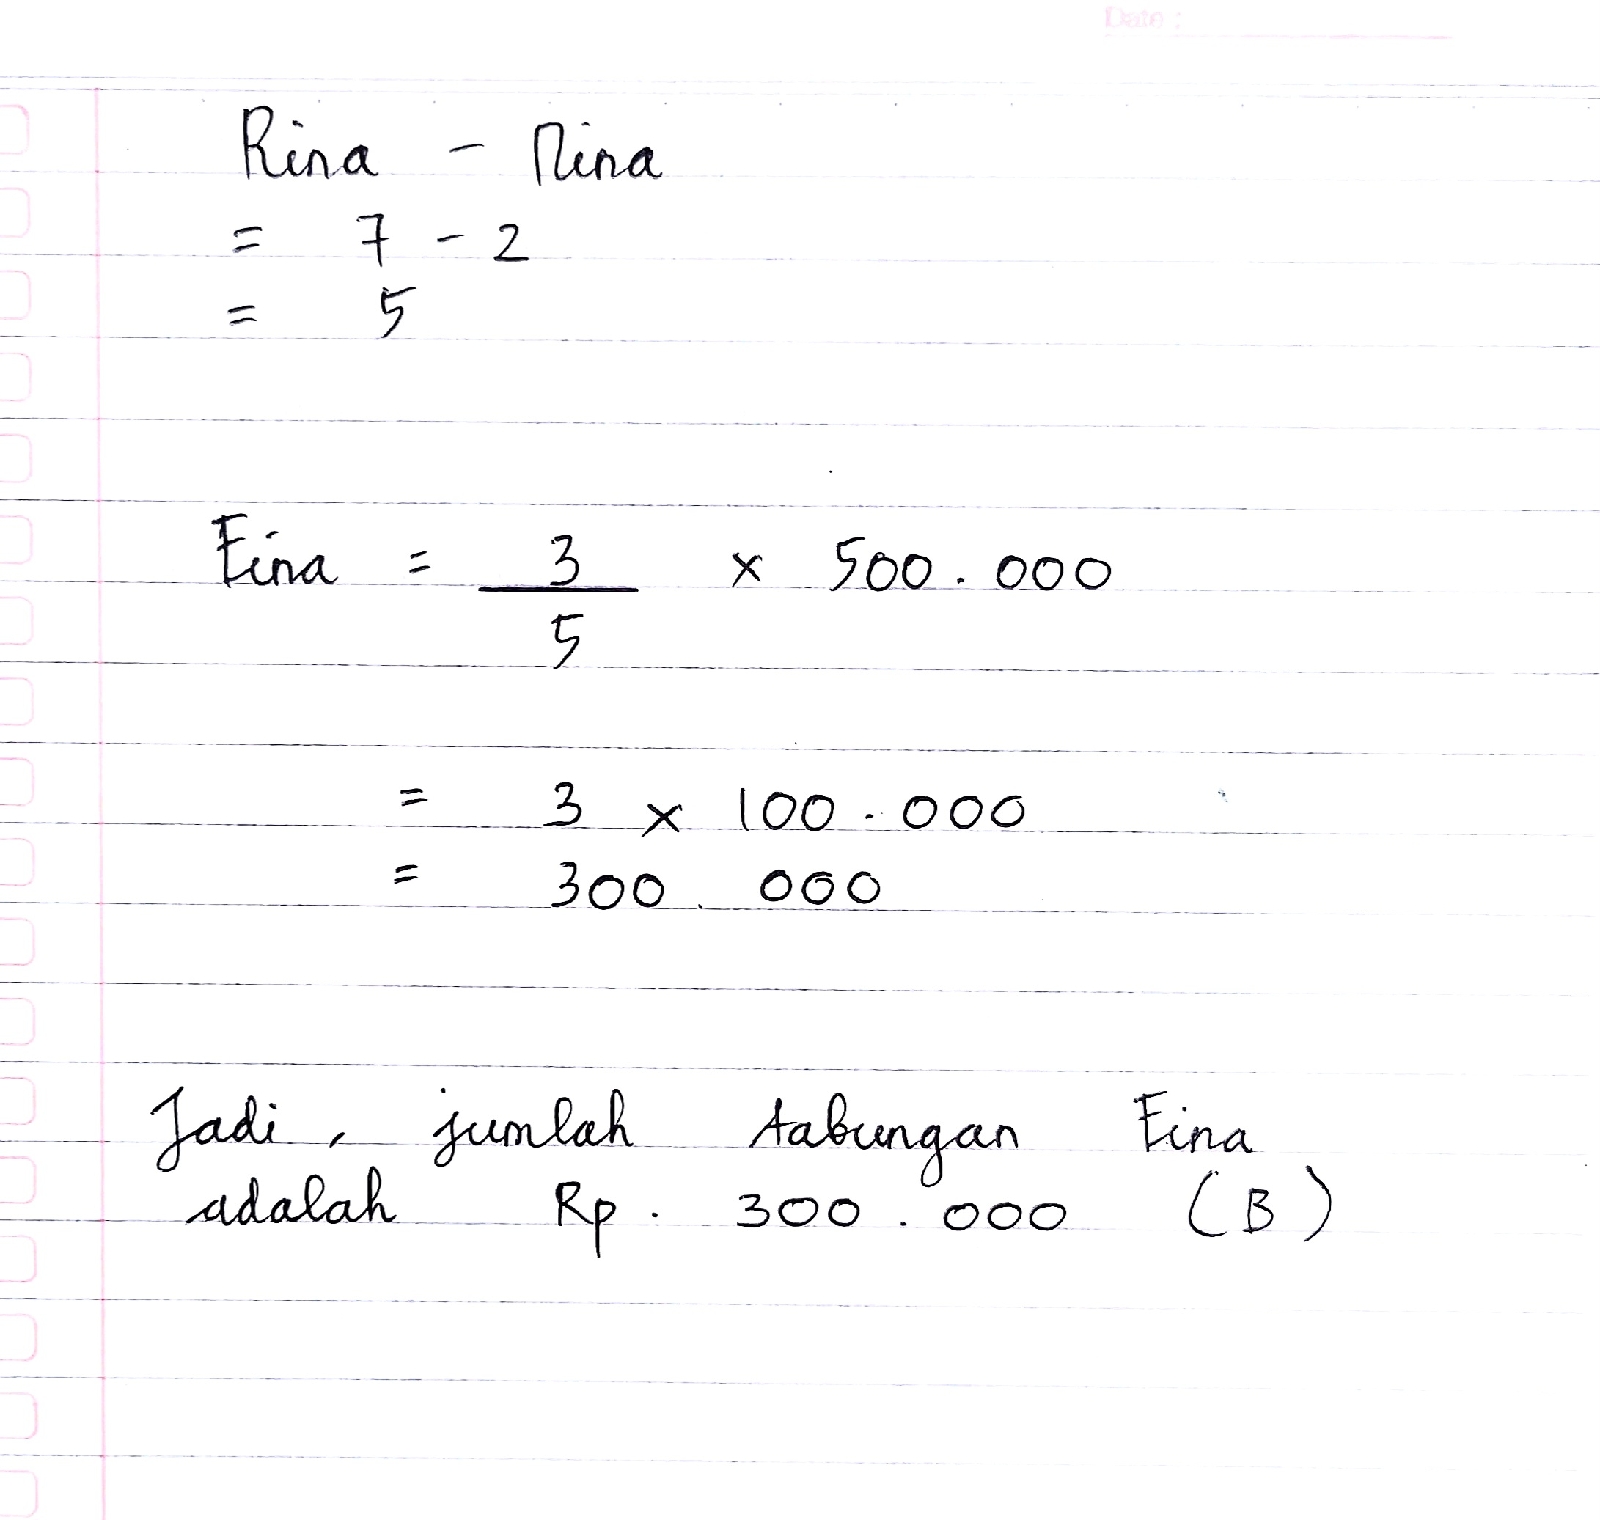 Date :
Rina - Nina
= 7 - 2
= 5
Fina = 3/5 x 500.000
= 3 x 100.000
= 300.000
Jadi, jumlah tabungan Fina
adalah Rp. 300.000 (B)